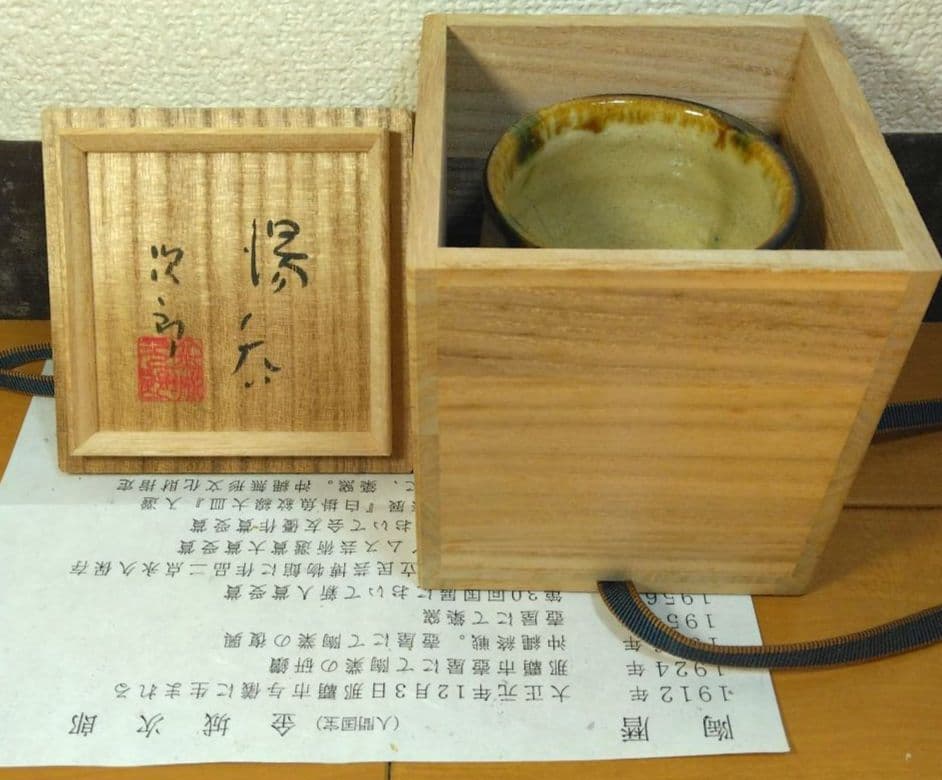 湯呑
次郎
陶暦 (人間国宝) 金城次郎
1912年 大正元年12月3日那覇市与儀に生まれる
1924年 那覇市壺屋にて陶業の研鑽
年 沖縄終戦。壺屋にて陶業の復興
195 壺屋にて築窯
1956 第30回国展において新人賞受賞
立民芸博物館に作品二点永久保存
ムス芸術選賞大賞受賞
おいて会友優作賞受賞
展『白掛魚紋線大皿』入選
て、築窯。沖縄無形文化財指定